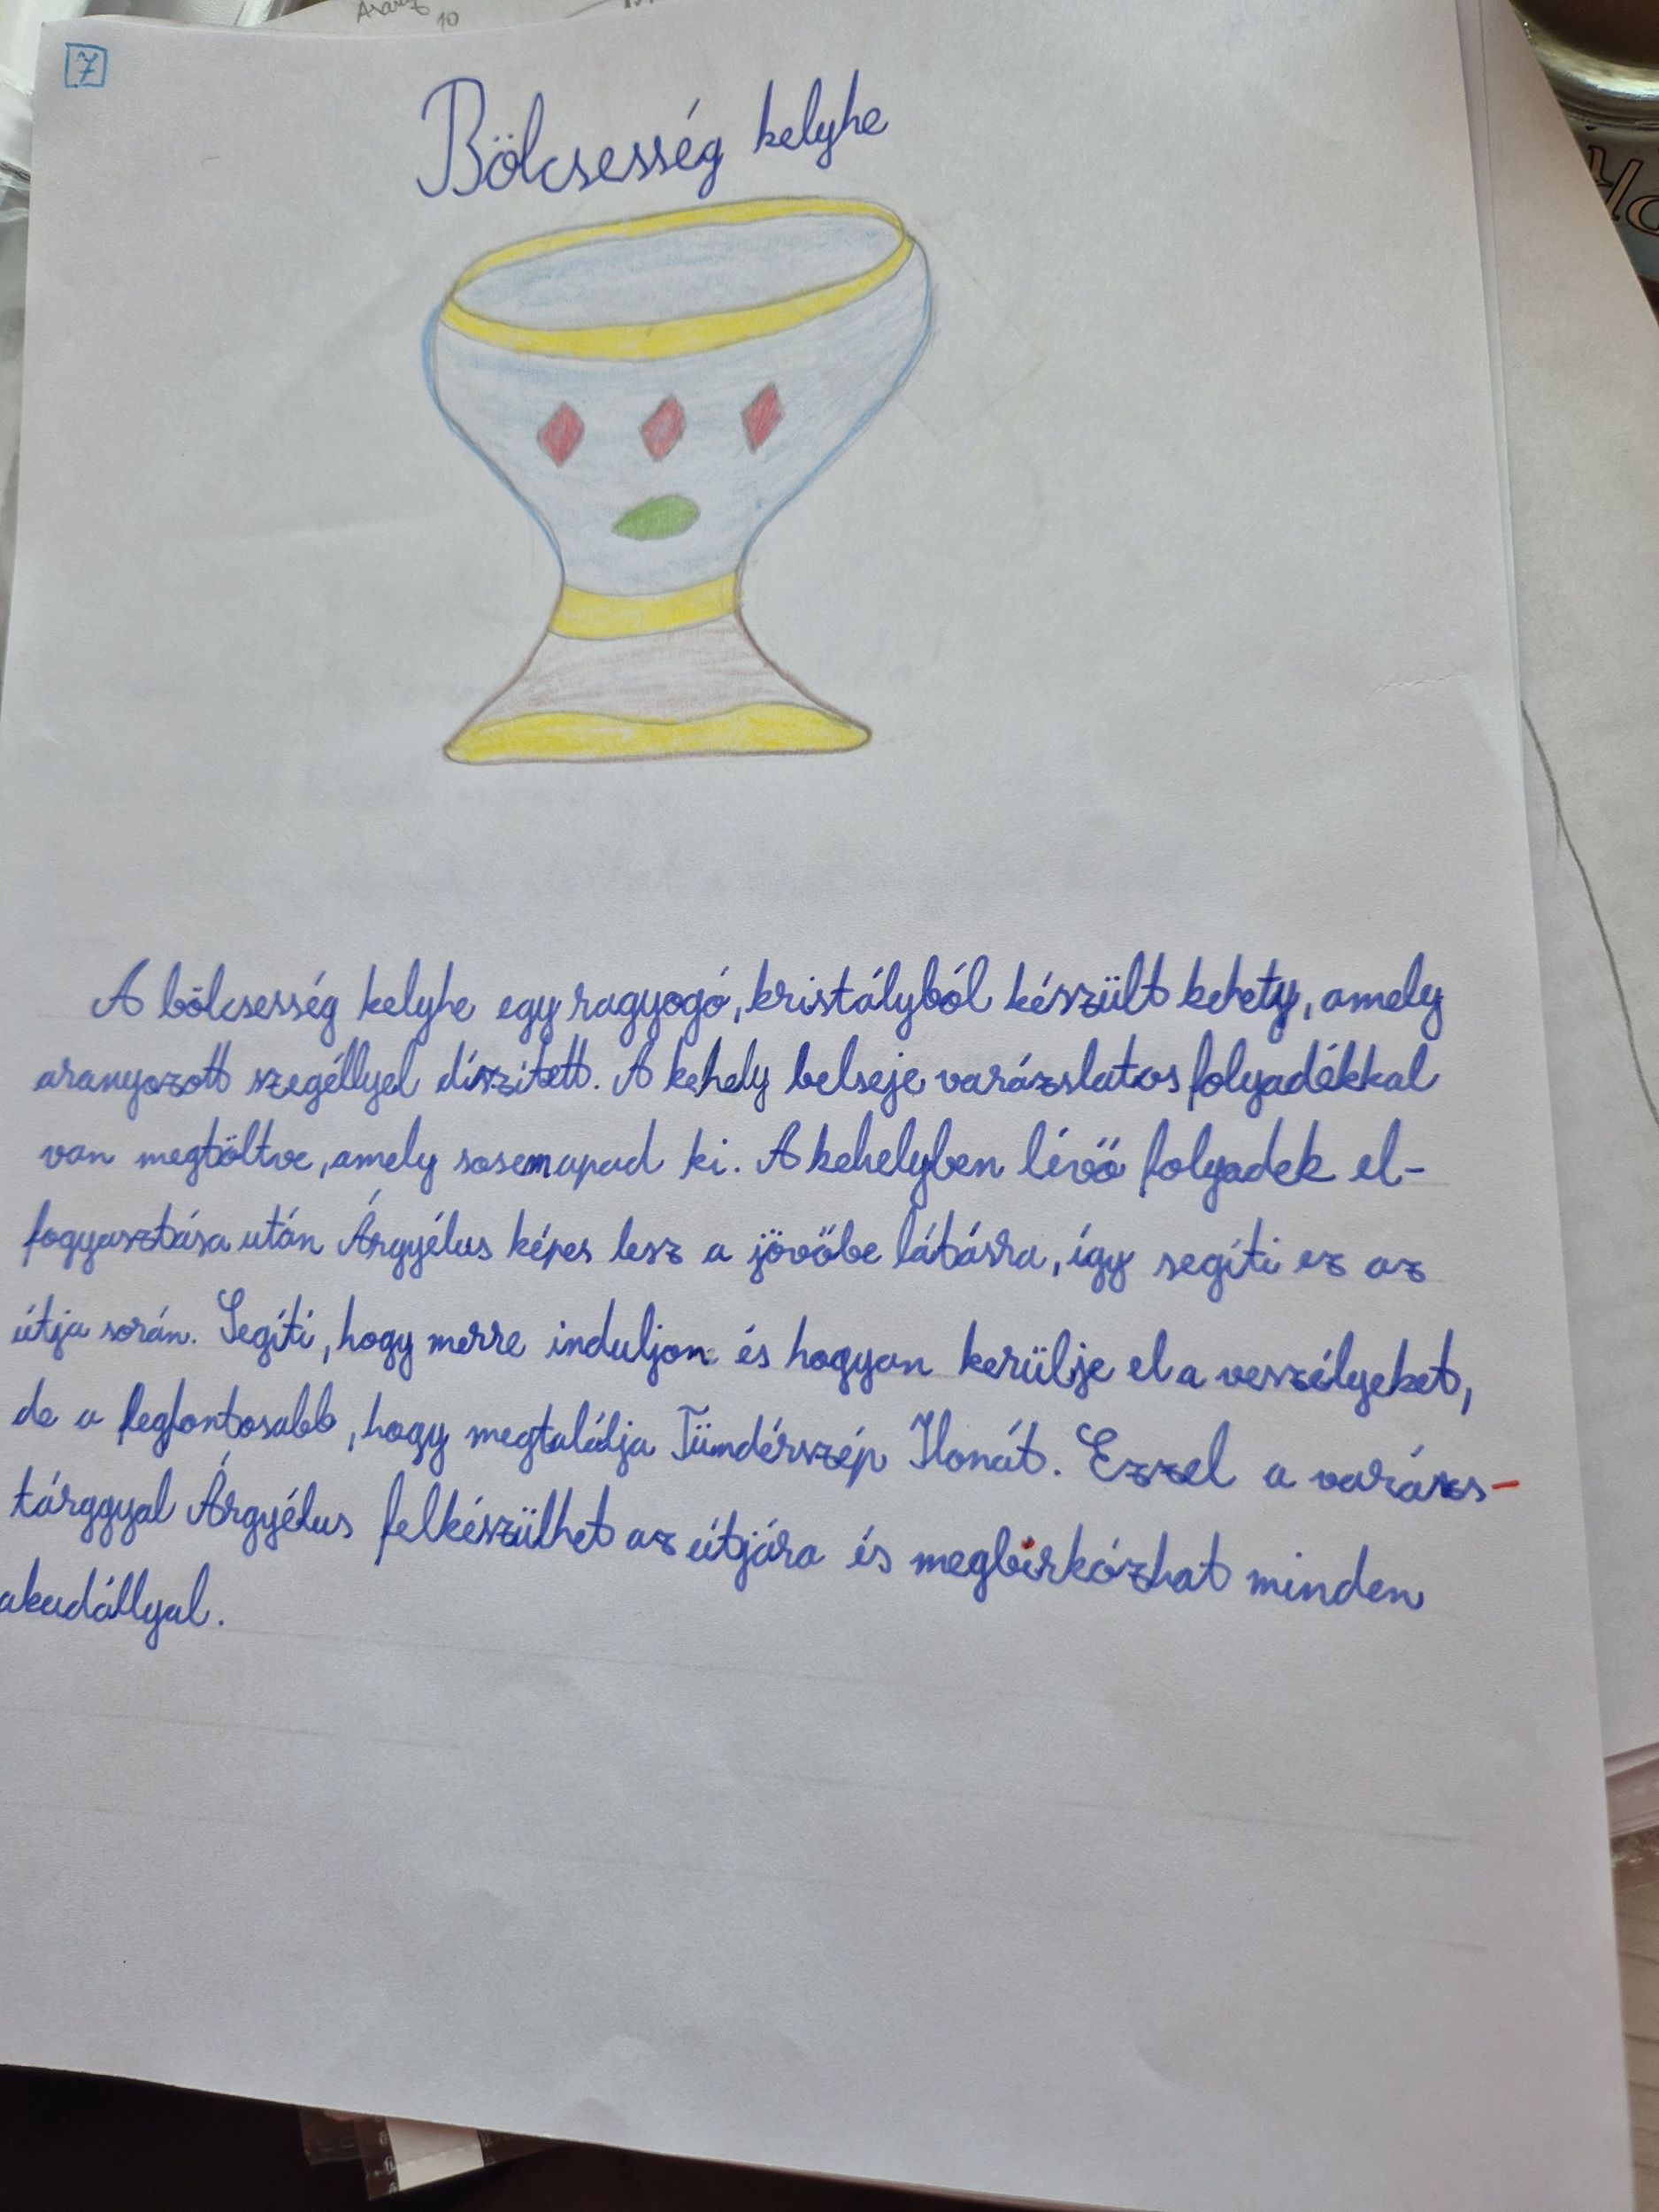 Arany
10
7
Bölcsesség kelyhe
A bölcsesség kelyhe egy ragyogó, kristályból készült kehely, amely
aranyozott szegéllyel díszitett. A kehely belseje varázslatos folyadékkal
van megtöltve, amely sosem apad ki. A kehelyben lévő folyadek el-
fogyasztása után Árgyélus képes lesz a jövőbe látásra, így segíti ez az
útja során. Segíti, hogy merre induljon és hogyan kerülje el a veszélyeket,
de a legfontosabb, hogy megtalálja Tündérszép Ilonát. Ezzel a varázs-
tárggyal Árgyélus felkészülhet az útjára és megbirkózhat minden
akadállyal.